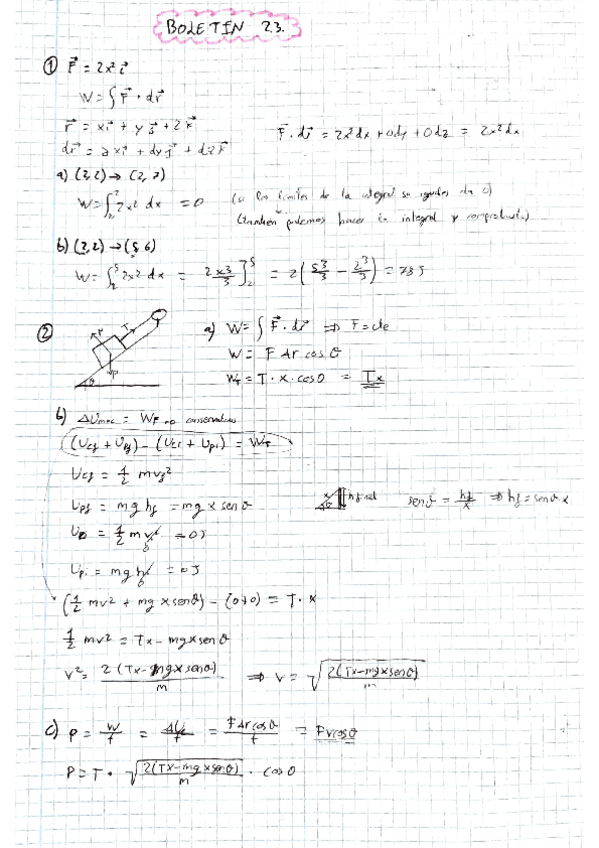 BOLETIN 23.
① F⃗ = 2x² i⃗
W = ∫ F⃗ · dr⃗
r⃗ = x i⃗ + y j⃗ + z k⃗
F⃗ · dr⃗ = 2x² dx + 0dy + 0dz = 2x² dx
dr⃗ = dx i⃗ + dy j⃗ + dz k⃗
a) (2,2) → (2,7)
W = ∫₂² 2x² dx = 0
(si los limites de la integral son iguales da 0)
(tambien podemos hacer la integral y comprobarlo)
b) (2,2) → (5,6)
W = ∫₂⁵ 2x² dx = 2 x³/3 ]₂⁵ = 2 (5³/3 − 2³/3) =
②
T
P
θ
a) W = ∫ F⃗ · dr⃗ ⇒ F = cte
W = F Δr cos θ
W_T = T · x · cos 0 = Tx
b) ΔU mec = W F no conservativas
(Ucf + Upf) − (Uci + Upi) = W_T
Ucf = 1/2 m vf²
Upf = mg hf = mg x sen θ
x
θ
sen θ = hf/x ⇒ hf = sen θ x
= 1/2 m v² = 0J
Upi = mg h = 0J
(1/2 mv² + mg x sen θ) − (0+0) = T · x
1/2 mv² = Tx − mg x sen θ
v² = 2 (Tx − mg x sen θ) / m ⇒ v = √(2(Tx − mg x sen θ) / m)
c) P = W/t = = F Δr cos θ / t = F v cos θ
P = T · √(2(Tx − mg x sen θ) / m) · cos 0